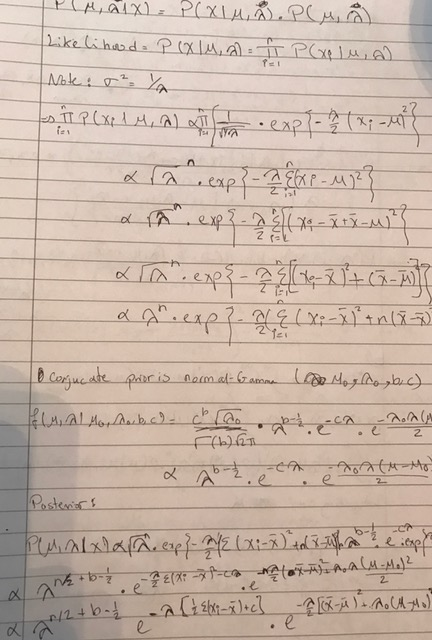 P(μ, λ|x) = P(x|μ, λ). P(μ, λ)
Likelihood = P(x|μ, λ) = ∏_{i=1}^{n} P(xi|μ, λ)
Note: σ² = 1/λ
=> ∏_{i=1}^{n} P(xi|μ, λ) ∝ ∏_{i=1}^{n} { 1/√(1/λ) · exp{ -λ/2 (xi - μ)² }
∝ √λ^n · exp{ -λ/2 Σ_{i=1}^{n} (xi - μ)² }
∝ √λ^n · exp{ -λ/2 Σ_{i=1}^{n} [(xi - x̄ + x̄ - μ)² }
∝ √λ^n · exp{ -λ/2 Σ_{i=1}^{n} [(xi - x̄)² + (x̄ - μ)²] }
∝ λ^n · exp{ -λ/2 ( Σ_{i=1}^{n} (xi - x̄)² + n(x̄ - x̄)
Conjucate prior is normal-Gamma ( μ0, λ0, b, c)
f(μ, λ | μ0, λ0, b, c) = c^b √λ0 / Γ(b) √2π · λ^{b-1/2} · e^{-cλ} · e^{-λ0λ(μ / 2}
∝ λ^{b-1/2} · e^{-cλ} · e^{-λ0λ(μ-μ0) / 2}
Posterior:
P(μ, λ|x) ∝ √λ^n · exp{ -λ/2 (Σ (xi - x̄)² + n(x̄ - μ) λ^{b-1/2} · e^{-cλ} · exp{
∝ λ^{n/2 + b - 1/2} · e^{-λ/2 Σ(xi - x̄)² - cλ} · e^{-nλ/2 (x̄ - μ)² + λ0λ(μ - μ0)² / 2}
∝ λ^{n/2 + b - 1/2} e^{-λ[1/2 Σ(xi - x̄) + c]} · e^{-λ/2 [(x̄ - μ)² + λ0(μ -